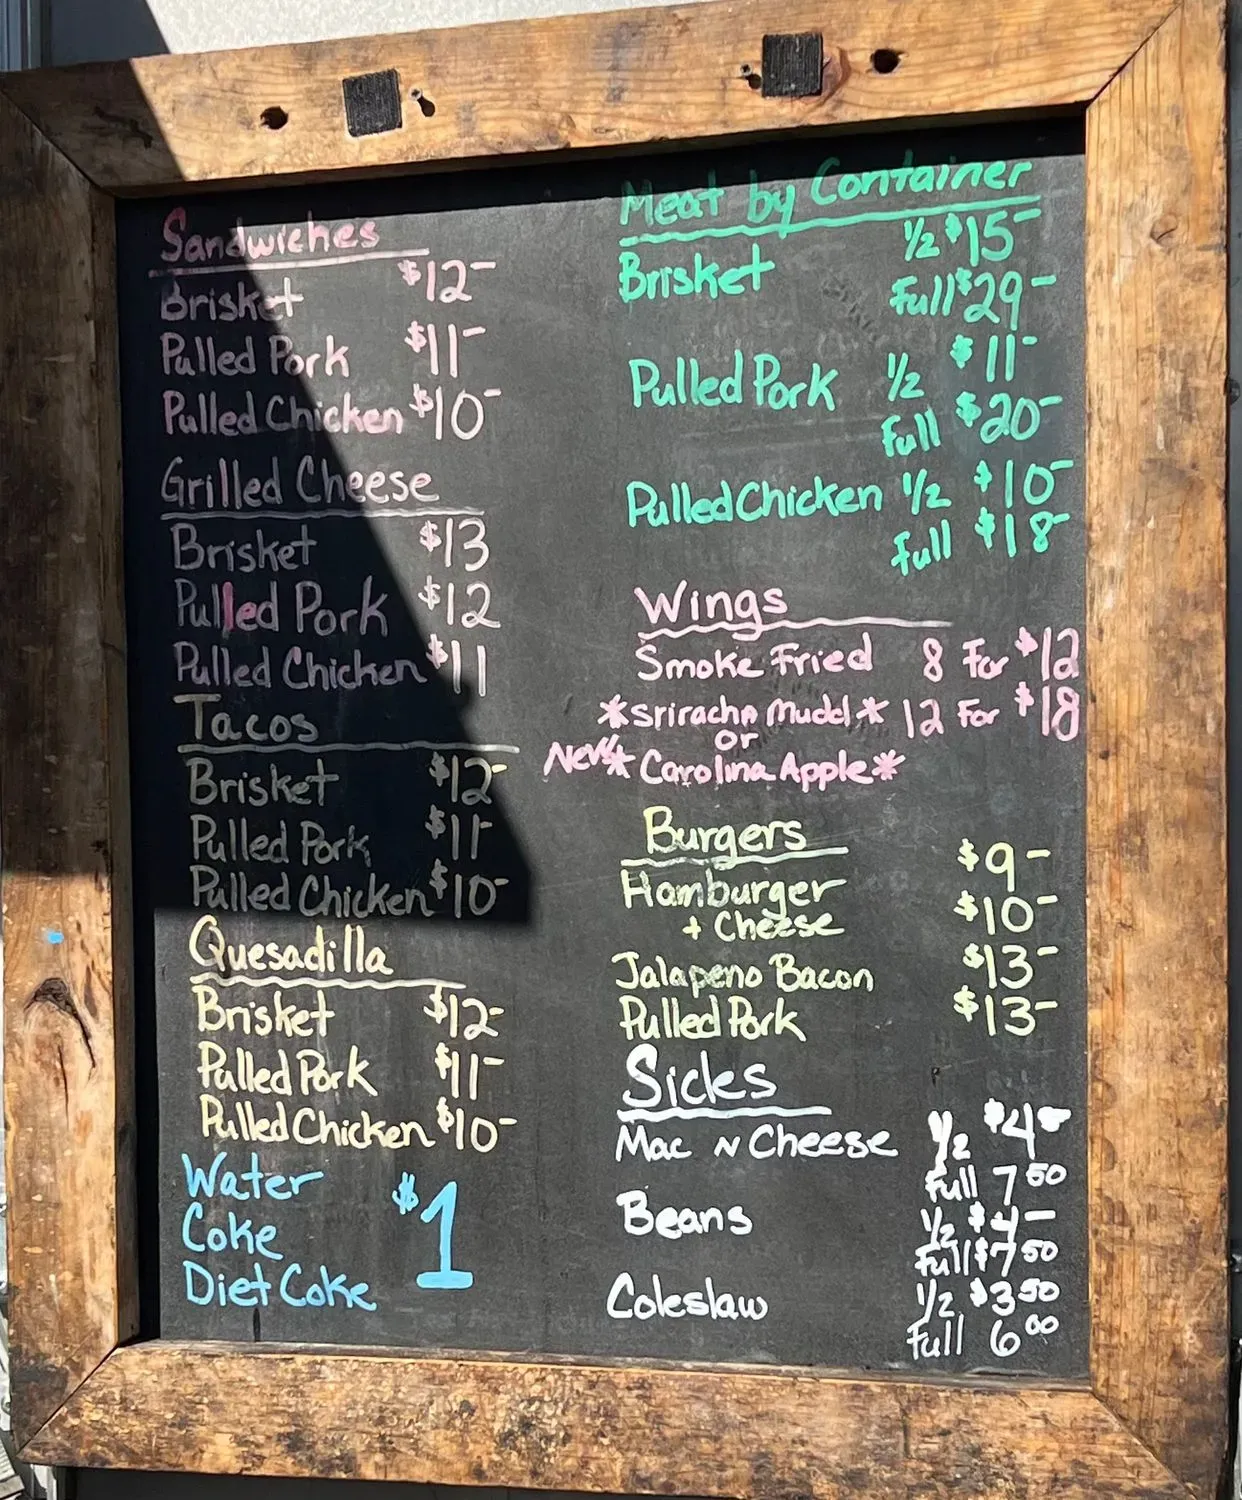 Sandwiches
Brisket $12-
Pulled Pork $11-
Pulled Chicken $10-
Grilled Cheese
Brisket $13
Pulled Pork $12
Pulled Chicken $11
Tacos
Brisket $12-
Pulled Pork $11-
Pulled Chicken $10-
Quesadilla
Brisket $12-
Pulled Pork $11-
Pulled Chicken $10-
Water
Coke $1
Diet Coke
Meat by Container
1/2 $15-
Brisket
Full $29-
Pulled Pork 1/2 $11-
Full $20-
Pulled Chicken 1/2 $10-
Full $18-
Wings
Smoke Fried 8 For $12
*Sriracha Mudd* 12 For $18
or
New * Carolina Apple*
Burgers
$9-
Hamburger
+ Cheese $10-
Jalapeno Bacon $13-
Pulled Pork $13-
Sides
Mac N Cheese 1/2 $4-
Full 7 50
Beans 1/2 $4-
Full $7 50
Coleslaw 1/2 $3 50
Full 6 00